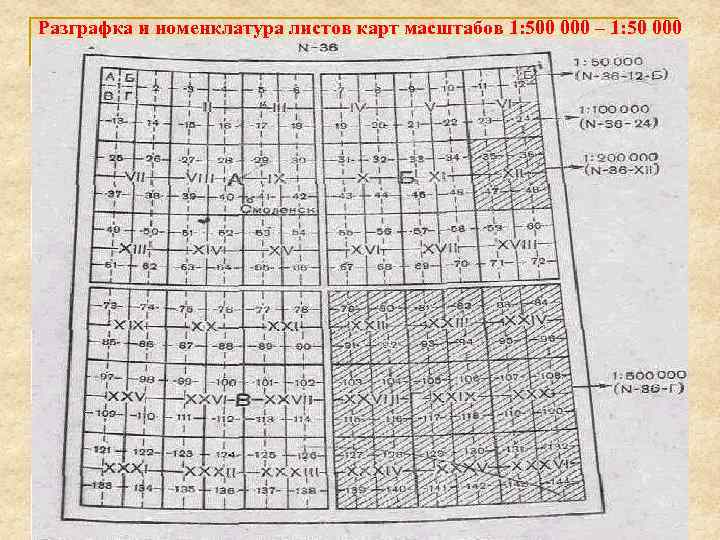 Разграфка и номенклатура листов карт масштабов 1: 500 000 – 1: 50 000
N-36
1:50 000
(N-36-12-Б)
А Б 2 3 4 5 6 7 8 9 10 11 12 Б
В Г II III IV V VI
1:100 000
(N-36-24)
13 14 15 16 17 18 19 20 21 22 23 24
25 26 27 28 29 30 31 32 33 34 35 36
1:200 000
(N-36-XII)
VII VIII А IX X Б XI XII
37 38 39 40 41 42 45 46 47 48
Смоленск
49 50 51 52 53 54 55 56 57 58 59 60
XIII XIV XV XVI XVII XVIII
61 62 63 64 65 66 67 68 69 70 71 72
73 74 75 76 77 78 79 80 81 82 83 84
XIX XX XXI XXII XXIII XXIV
85 86 87 88 89 90 91 92 93 94 95 96
1:500 000
(N-36-Г)
97 98 99 100 101 102 103 104 105 106 107 108
XXV XXVI В XXVII XXVIII XXIX XXX
109 110 111 112 113 114 115 116 117 118 119 120
121 122 123 124 125 126 127 128 129 130 131 132
XXXI XXXII XXXIII XXXIV XXXV XXXVI
133 134 135 136 137 138 139 140 141 142